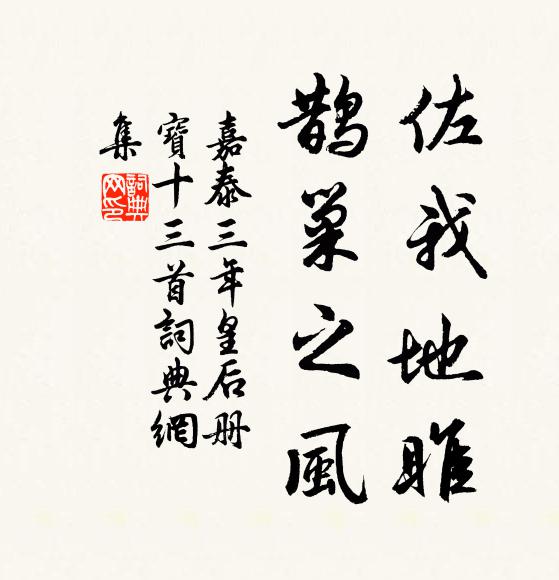 佐我地睢
鹊巢之風
嘉泰三年皇后册
寶十三首詞典網
集
詞典
网印